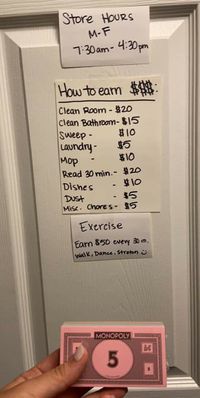 Store Hours
M-F
7:30am - 4:30pm
How to earn $$$:
Clean Room - $20
Clean Bathroom - $15
Sweep - $10
Laundry - $5
Mop - $10
Read 30 min. - $20
Dishes - $10
Dust - $5
Misc. Chores - $5
Exercise
Earn $50 every 30 m.
Walk, Dance, Stretch
MONOPOLY
5